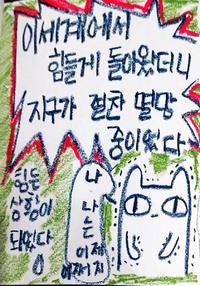 이세계에서
힘들게 돌아왔더니
지구가 절찬 멸망
중이었다
힘든
상황이
되었다
나
나
는 이제
어쩌지